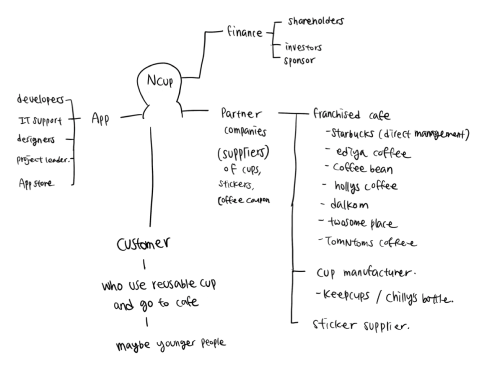 Ncup
finance
shareholders
investors
sponsor
App
developers
IT support
designers
project leader.
App store
Partner
companies
(suppliers)
of cups,
stickers,
coffee coupon
franchised cafe
- Starbucks (direct management)
- ediya coffee
- Coffee bean
- hollys coffee
- dalkom
- twosome place
- TomNtoms coffee
cup manufacturer.
- keepcups / chilly's bottle.
sticker supplier.
Customer
who use reusable cup
and go to cafe
maybe younger people